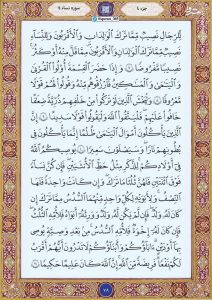 جزء ٤
سوره نساء ٤
لِّلرِّجَالِ نَصِيبٌ مِّمَّا تَرَكَ ٱلْوَٰلِدَانِ وَٱلْأَقْرَبُونَ وَلِلنِّسَآءِ
نَصِيبٌ مِّمَّا تَرَكَ ٱلْوَٰلِدَانِ وَٱلْأَقْرَبُونَ مِمَّا قَلَّ مِنْهُ أَوْ كَثُرَ
نَصِيبًا مَّفْرُوضًا ٧ وَإِذَا حَضَرَ ٱلْقِسْمَةَ أُو۟لُوا۟ ٱلْقُرْبَىٰ
وَٱلْيَتَٰمَىٰ وَٱلْمَسَٰكِينُ فَٱرْزُقُوهُم مِّنْهُ وَقُولُوا۟ لَهُمْ قَوْلًا
مَّعْرُوفًا ٨ وَلْيَخْشَ ٱلَّذِينَ لَوْ تَرَكُوا۟ مِنْ خَلْفِهِمْ ذُرِّيَّةً ضِعَٰفًا
خَافُوا۟ عَلَيْهِمْ فَلْيَتَّقُوا۟ ٱللَّهَ وَلْيَقُولُوا۟ قَوْلًا سَدِيدًا ٩ إِنَّ
ٱلَّذِينَ يَأْكُلُونَ أَمْوَٰلَ ٱلْيَتَٰمَىٰ ظُلْمًا إِنَّمَا يَأْكُلُونَ فِى
بُطُونِهِمْ نَارًا وَسَيَصْلَوْنَ سَعِيرًا ١٠ يُوصِيكُمُ ٱللَّهُ
فِىٓ أَوْلَٰدِكُمْ لِلذَّكَرِ مِثْلُ حَظِّ ٱلْأُنثَيَيْنِ فَإِن كُنَّ نِسَآءً
فَوْقَ ٱثْنَتَيْنِ فَلَهُنَّ ثُلُثَا مَا تَرَكَ وَإِن كَانَتْ وَٰحِدَةً فَلَهَا
ٱلنِّصْفُ وَلِأَبَوَيْهِ لِكُلِّ وَٰحِدٍ مِّنْهُمَا ٱلسُّدُسُ مِمَّا تَرَكَ إِن
كَانَ لَهُۥ وَلَدٌ فَإِن لَّمْ يَكُن لَّهُۥ وَلَدٌ وَوَرِثَهُۥٓ أَبَوَاهُ فَلِأُمِّهِ ٱلثُّلُثُ
فَإِن كَانَ لَهُۥٓ إِخْوَةٌ فَلِأُمِّهِ ٱلسُّدُسُ مِنۢ بَعْدِ وَصِيَّةٍ يُوصِى
بِهَآ أَوْ دَيْنٍ ءَابَآؤُكُمْ وَأَبْنَآؤُكُمْ لَا تَدْرُونَ أَيُّهُمْ أَقْرَبُ
لَكُمْ نَفْعًا فَرِيضَةً مِّنَ ٱللَّهِ إِنَّ ٱللَّهَ كَانَ عَلِيمًا حَكِيمًا ١١
٧٨